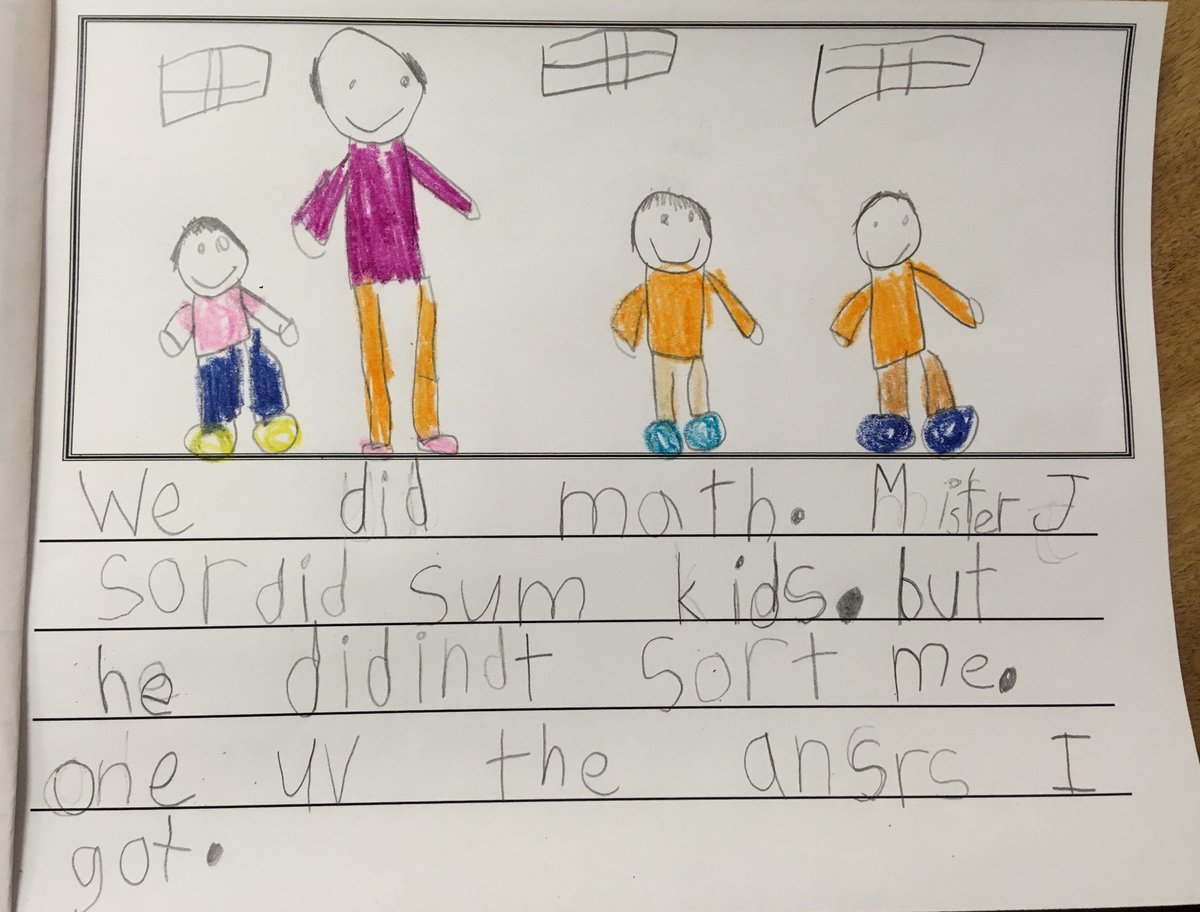 We did math. Mister J
sordid sum kids. but
he didindt sort me.
one uv the ansrs I
got.